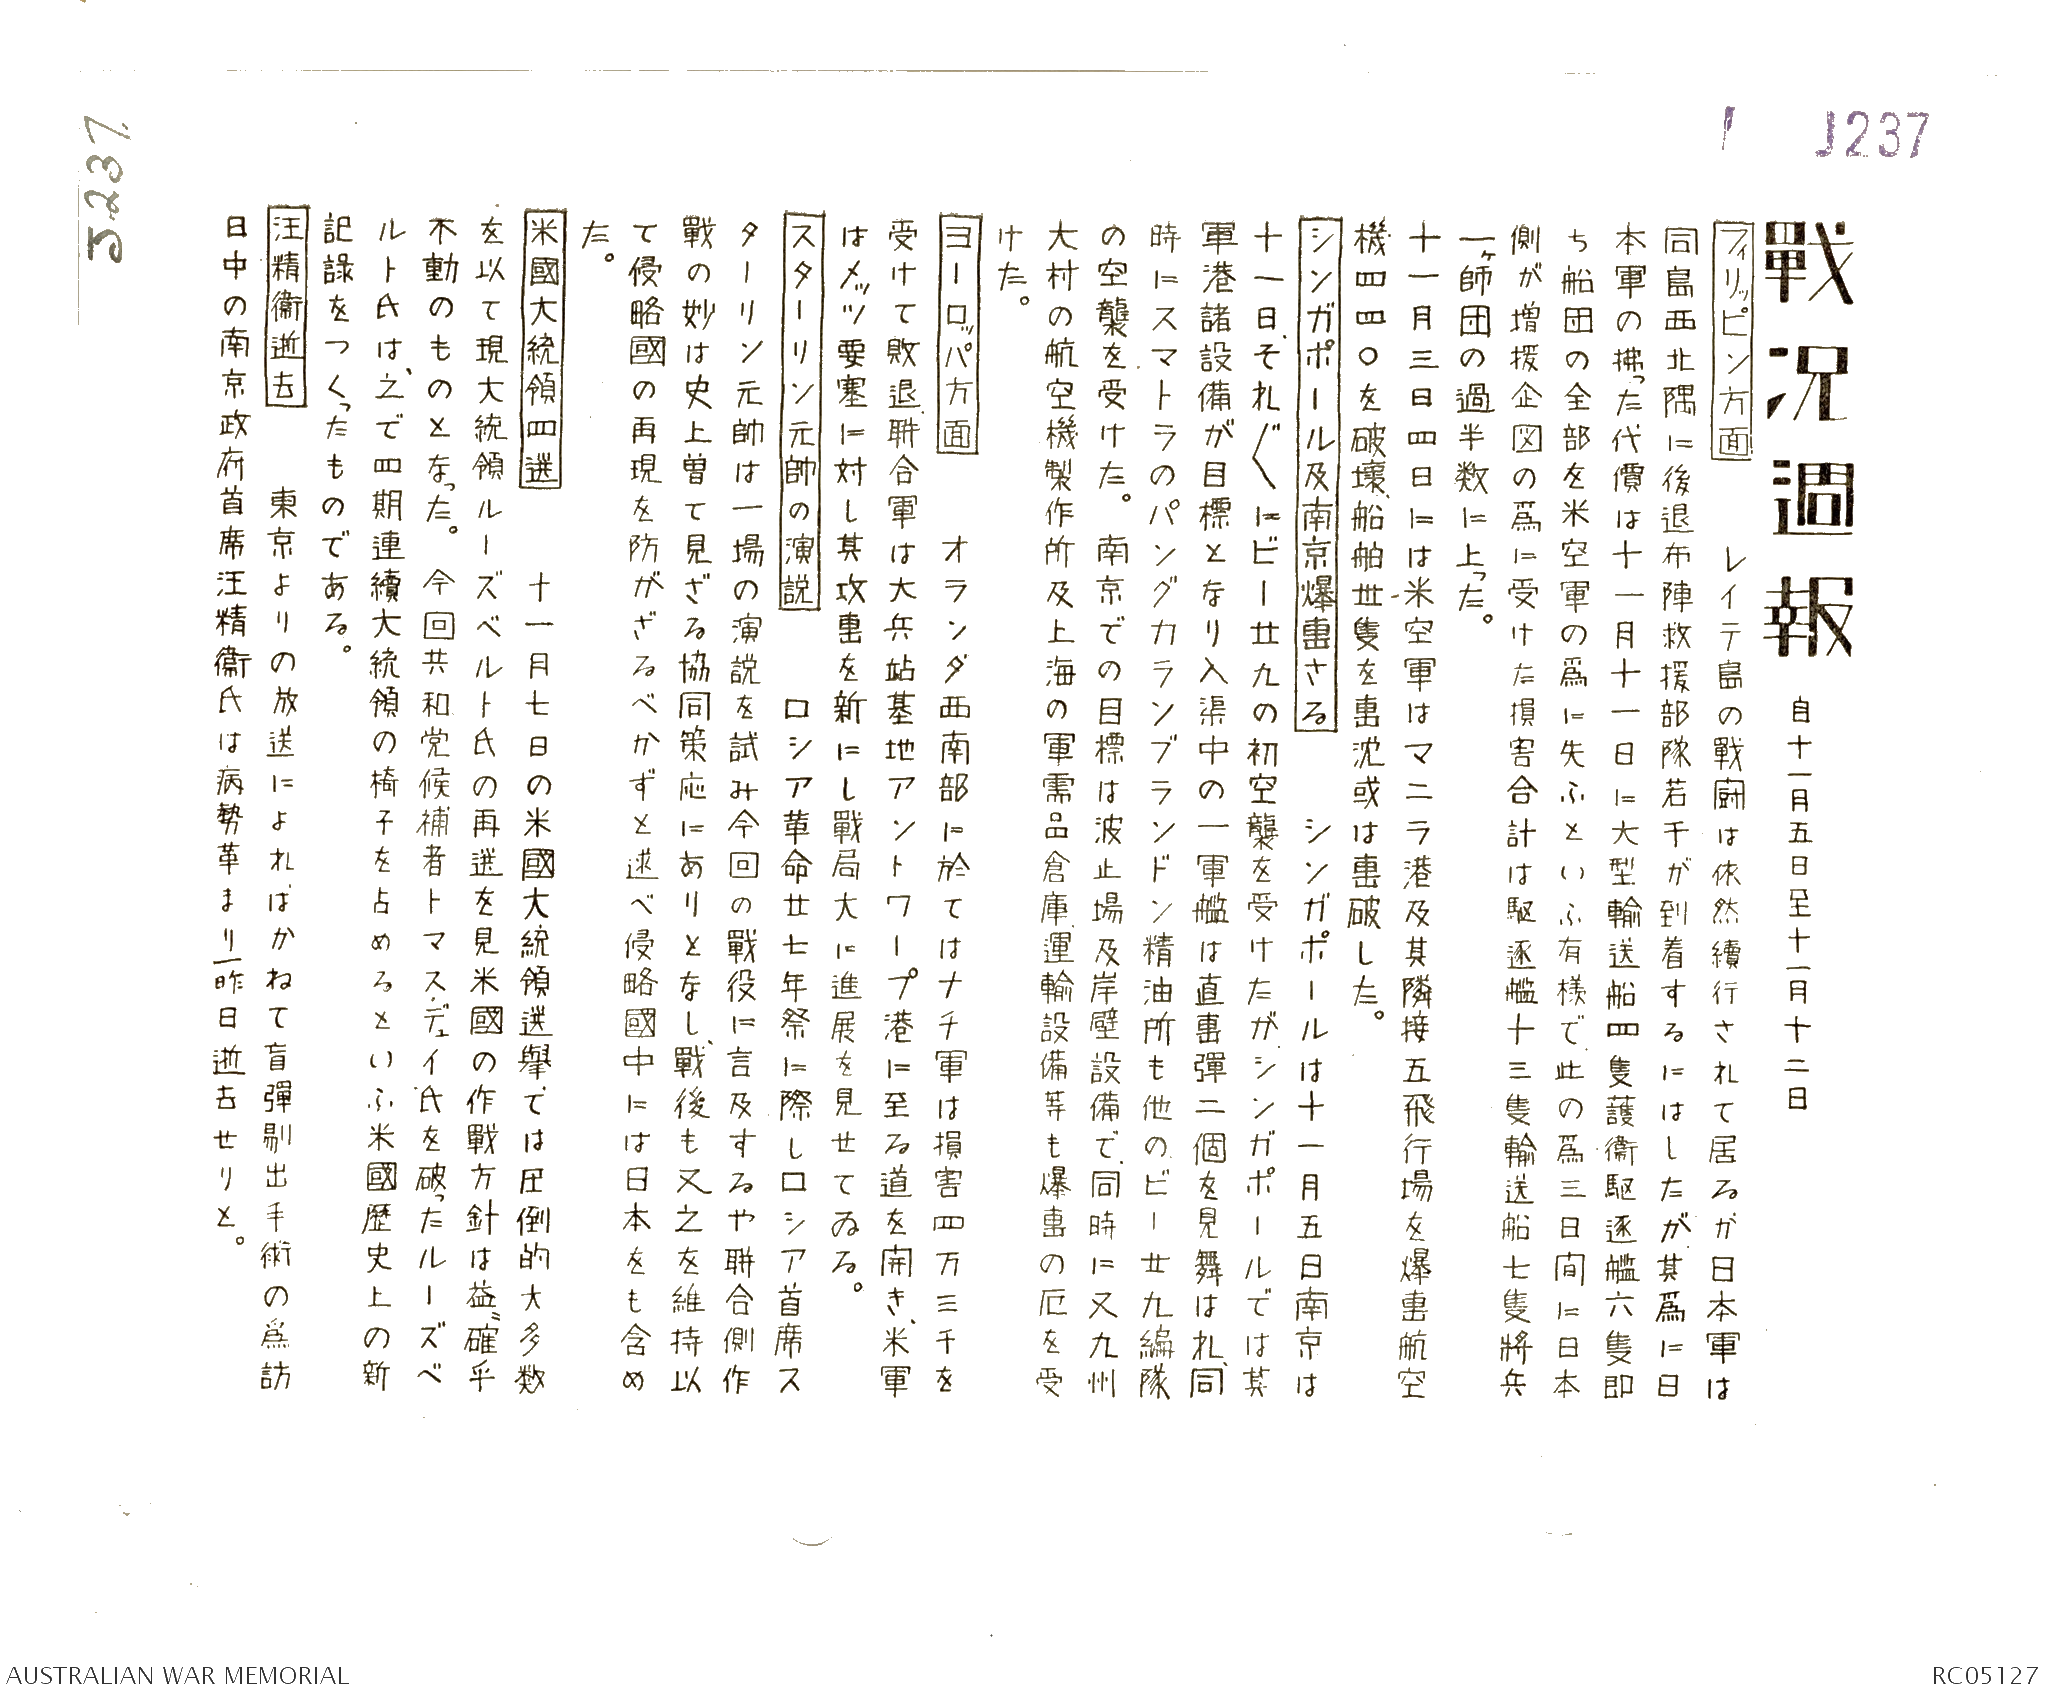 J237
戰況週報
自十一月五日至十一月十二日
フィリッピン方面　レイテ島の戰鬪は依然續行されて居るが日本軍は
同島西北隅に後退布陣救援部隊若干が到着するにはしたが其爲に日
本軍の拂った代價は十一月十一日に大型輸送船四隻護衞駆逐艦六隻即
ち船団の全部を米空軍の爲に失ふといふ有様で此の爲三日間に日本
側が増援企図の爲に受けた損害合計は駆逐艦十三隻輸送船七隻將兵
一ヶ師団の過半数に上った。
十一月三日四日には米空軍はマニラ港及其隣接五飛行場を爆擊航空
機四四〇を破壞、船舶丗隻を擊沈或は擊破した。
シンガポール及南京爆擊さる　シンガポールは十一月五日南京は
十一日、それ〲にビー廿九の初空襲を受けたがシンガポールでは其
軍港諸設備が目標となり入渠中の一軍艦は直擊彈二個を見舞はれ、同
時にスマトラのパングカランブランドン精油所も他のビー廿九編隊
の空襲を受けた。南京での目標は波止場及岸壁設備で、同時に又九州
大村の航空機製作所及上海の軍需品倉庫運輸設備等も爆擊の厄を受
けた。
ヨーロッパ方面　オランダ西南部に於てはナチ軍は損害四万三千を
受けて敗退、聯合軍は大兵站基地アントワープ港に至る道を開き、米軍
はメッツ要塞に対し其攻擊を新にし戰局大に進展を見せてゐる。
スターリン元帥の演説　ロシア革命廿七年祭に際しロシア首席ス
ターリン元帥は一場の演説を試み今回の戰役に言及するや聯合側作
戰の妙は史上曽て見ざる協同策応にありとなし、戰後も又之を維持以
て侵略國の再現を防がざるべかずと述べ侵略國中には日本をも含め
た。
米國大統領四選　十一月七日の米國大統領選擧では圧倒的大多数
を以て現大統領ルーズベルト氏の再選を見米國の作戰方針は益〻確乎
不動のものとなった。今回共和党候補者トマス・デュイ氏を破ったルーズベ
ルト氏は、之で四期連續大統領の椅子を占めるといふ米國歴史上の新
記錄をつくったものである。
汪精衞逝去　東京よりの放送によればかねて盲彈剔出手術の爲訪
日中の南京政府首席汪精衞氏は病勢革まり一昨日逝去せりと。
5237.
AUSTRALIAN WAR MEMORIAL
RC05127